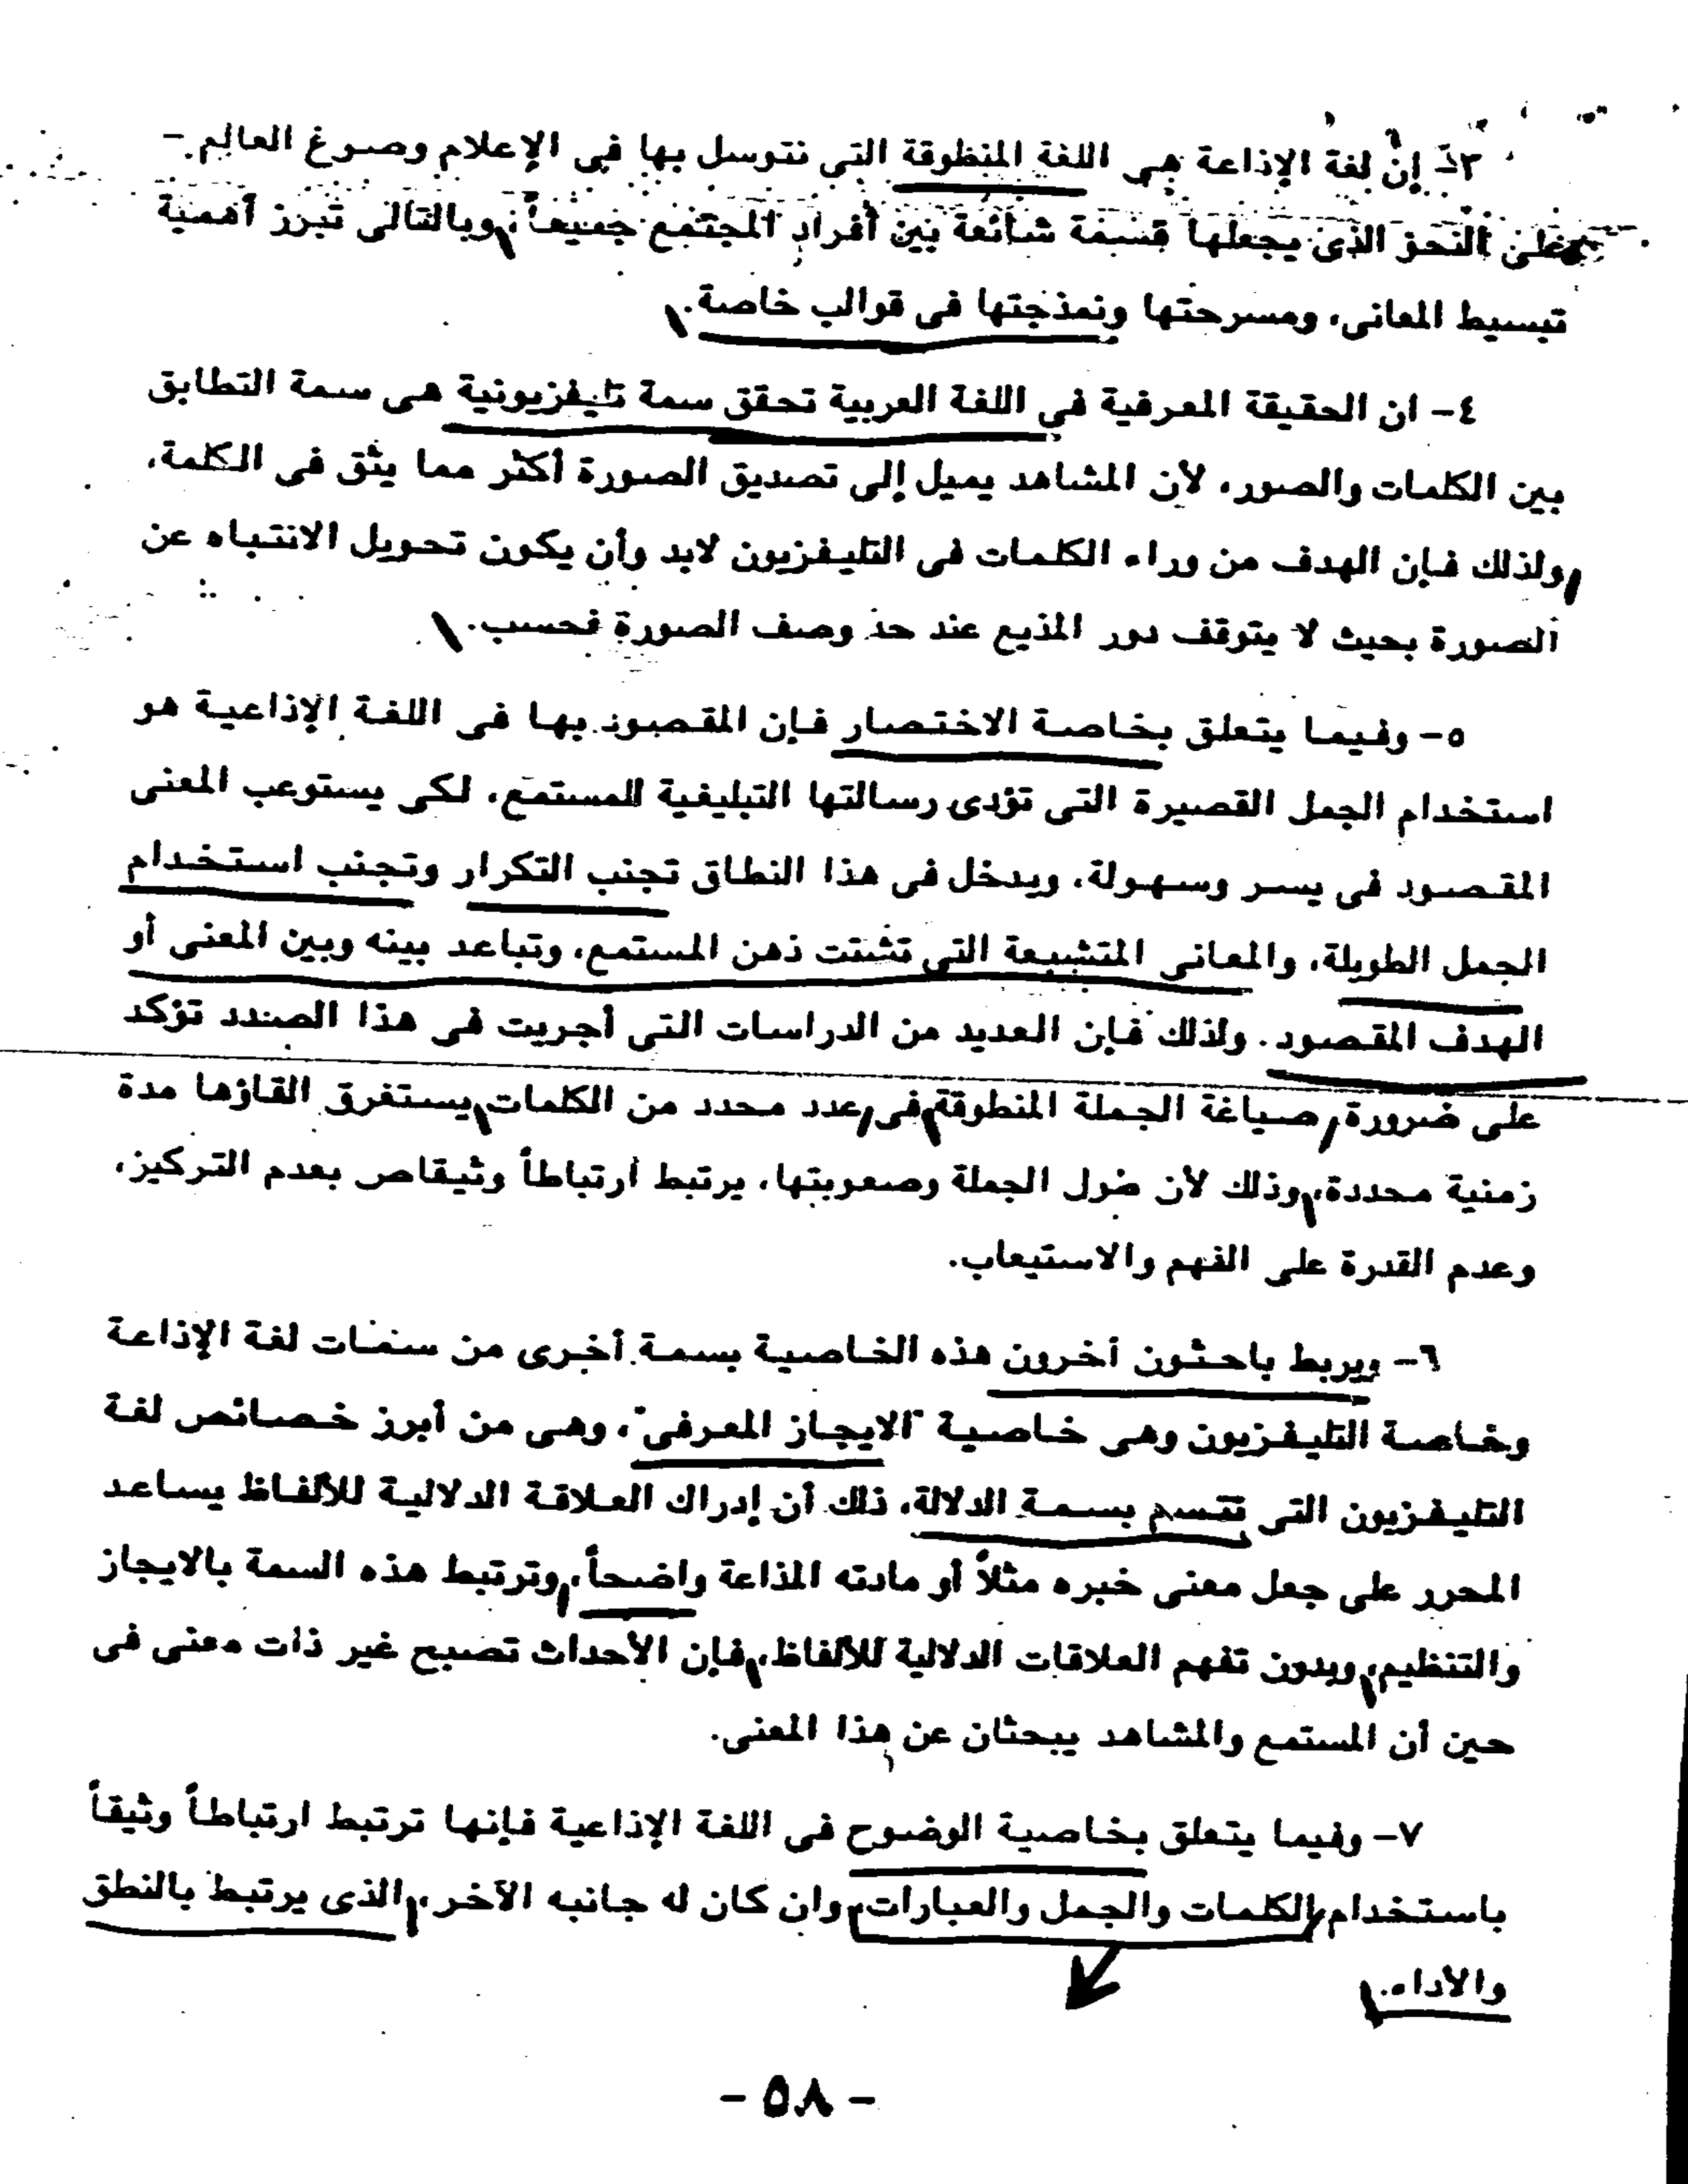 ٣- إن لغة الإذاعة هي اللغة المنطوقة التى نتوسل بها فى الإعلام وصوغ العالم -
على النحو الذى يجعلها قسمة شائعة بين أفراد المجتمع جميعاً، وبالتالى تبرز أهمية
تبسيط المعانى، ومسرحتها ونمذجتها فى قوالب خاصة.
٤- ان الحقيقة المعرفية في اللغة العربية تحقق سمة تليفزيونية هى سمة التطابق
بين الكلمات والصور، لأن المشاهد يميل إلى تصديق الصورة أكثر مما يثق فى الكلمة،
ولذلك فإن الهدف من وراء الكلمات فى التليفزيون لابد وأن يكون تحويل الانتباه عن
الصورة بحيث لا يتوقف دور المذيع عند حد وصف الصورة فحسب.
٥- وفيما يتعلق بخاصة الاختصار فإن المقصود بها فى اللغة الإذاعية هو
استخدام الجمل القصيرة التى تؤدى رسالتها التبليغية للمستمع، لكى يستوعب المعنى
المقصود فى يسر وسهولة، ويدخل فى هذا النطاق تجنب التكرار وتجنب استخدام
الجمل الطويلة، والمعانى المتشبعة التى تشتت ذهن المستمع، وتباعد بينه وبين المعنى أو
الهدف المقصود. ولذلك فإن العديد من الدراسات التى أجريت فى هذا الصدد تؤكد
على ضرورة صياغة الجملة المنطوقة فى عدد محدد من الكلمات يستغرق القاؤها مدة
زمنية محددة، وذلك لأن طول الجملة وصعوبتها، يرتبط ارتباطاً وثيقاص بعدم التركيز،
وعدم القدرة على الفهم والاستيعاب.
٦- ويربط باحثون آخرون هذه الخاصية بسمة أخرى من سمات لغة الإذاعة
وخاصة التليفزيون وهى خاصية "الايجاز المعرفى"، وهى من أبرز خصائص لغة
التليفزيون التى تتسم بسمة الدلالة، ذلك أن إدراك العلاقة الدلالية للألفاظ يساعد
المحرر على جعل معنى خبره مثلاً أو مادته المذاعة واضحاً، وترتبط هذه السمة بالايجاز
والتنظيم، وبدون تفهم العلاقات الدلالية للألفاظ، فإن الأحداث تصبح غير ذات معنى فى
حين أن المستمع والمشاهد يبحثان عن هذا المعنى.
٧- وفيما يتعلق بخاصية الوضوح فى اللغة الإذاعية فإنها ترتبط ارتباطاً وثيقاً
باستخدام الكلمات والجمل والعبارات، وان كان له جانبه الآخر، الذى يرتبط بالنطق
والأداء.
- ٥٨ -